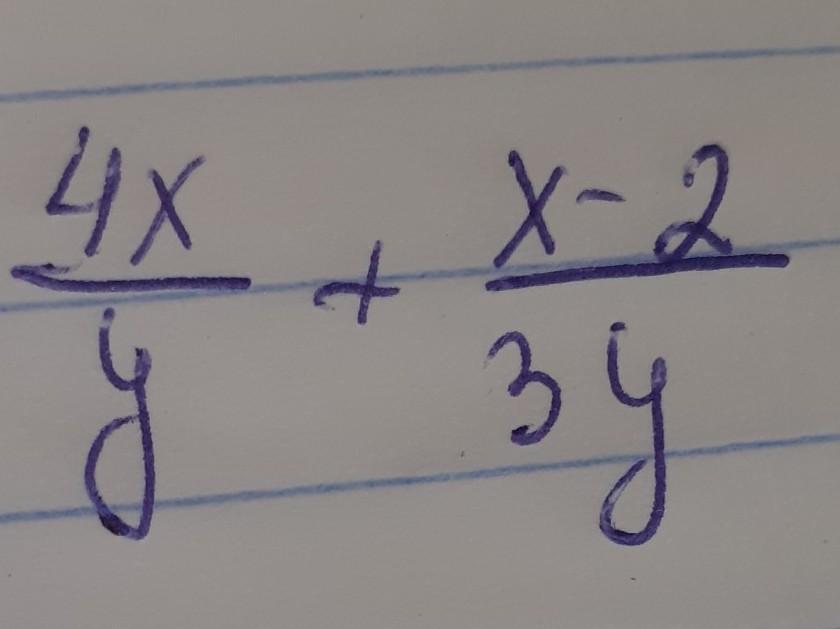 4x/y + x-2/3y